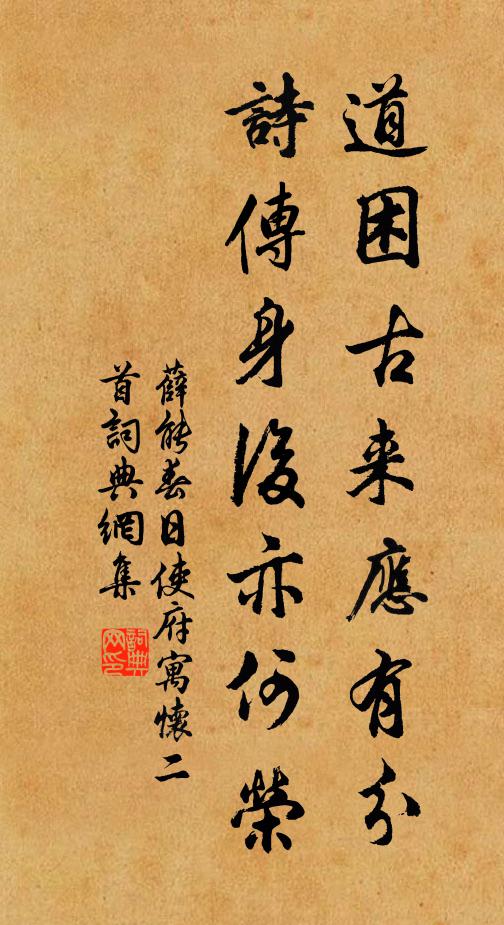 道困古来應有分
詩傳身後亦何榮
薛能春日使府寓懷二
首詞典網集
詞典网印